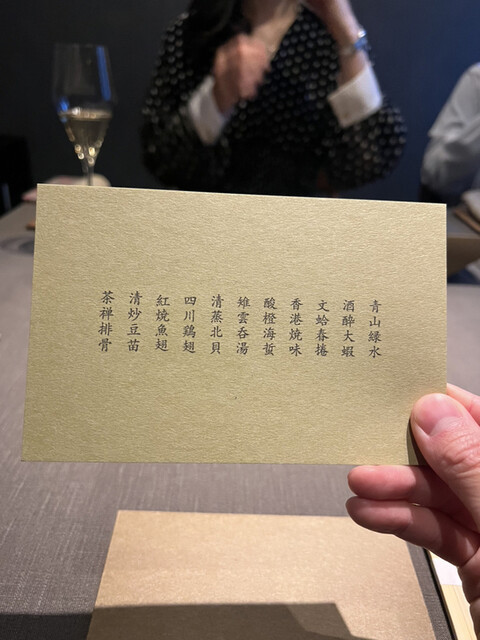 青山緑水
酒酔大蝦
文蛤春捲
香港焼味
酸橙海蜇
雉雲呑湯
清蒸北貝
四川鶏翅
紅焼魚翅
清炒豆苗
茶禅排骨